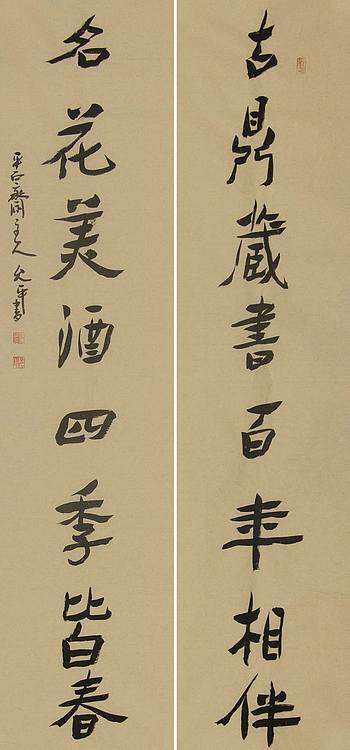 古鼎藏書百年相伴
名花美酒四季皆春
允平書